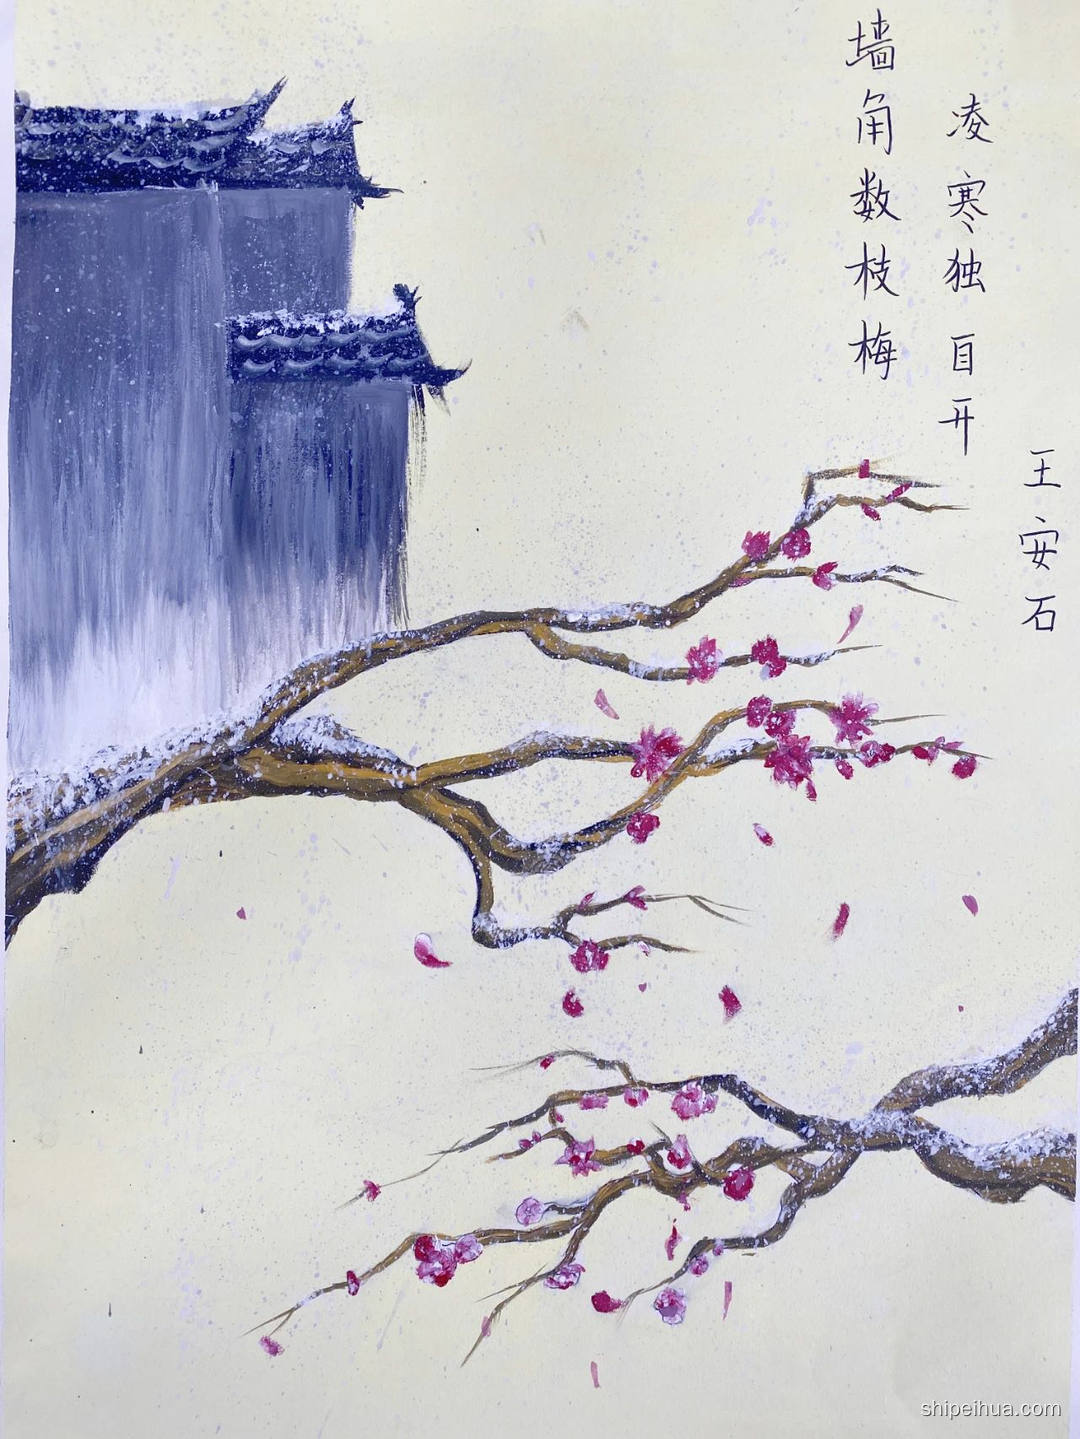 墙角数枝梅
凌寒独自开
王安石
shipeihua.com